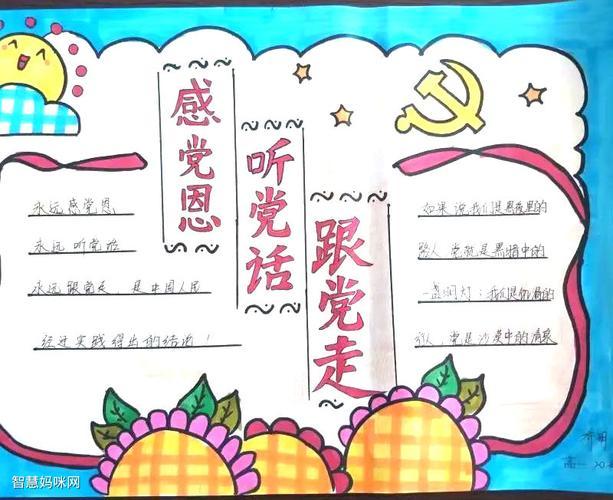 感党恩
听党话
跟党走
永远感党恩
永远听党话
永远跟党走，是中国人民
经过实践得出的结论！
如果说我们是黑夜里的
路人 党就是黑暗中的
一盏明灯；我们是饥渴的
行人，党是沙漠中的清泉
高一
智慧妈咪网